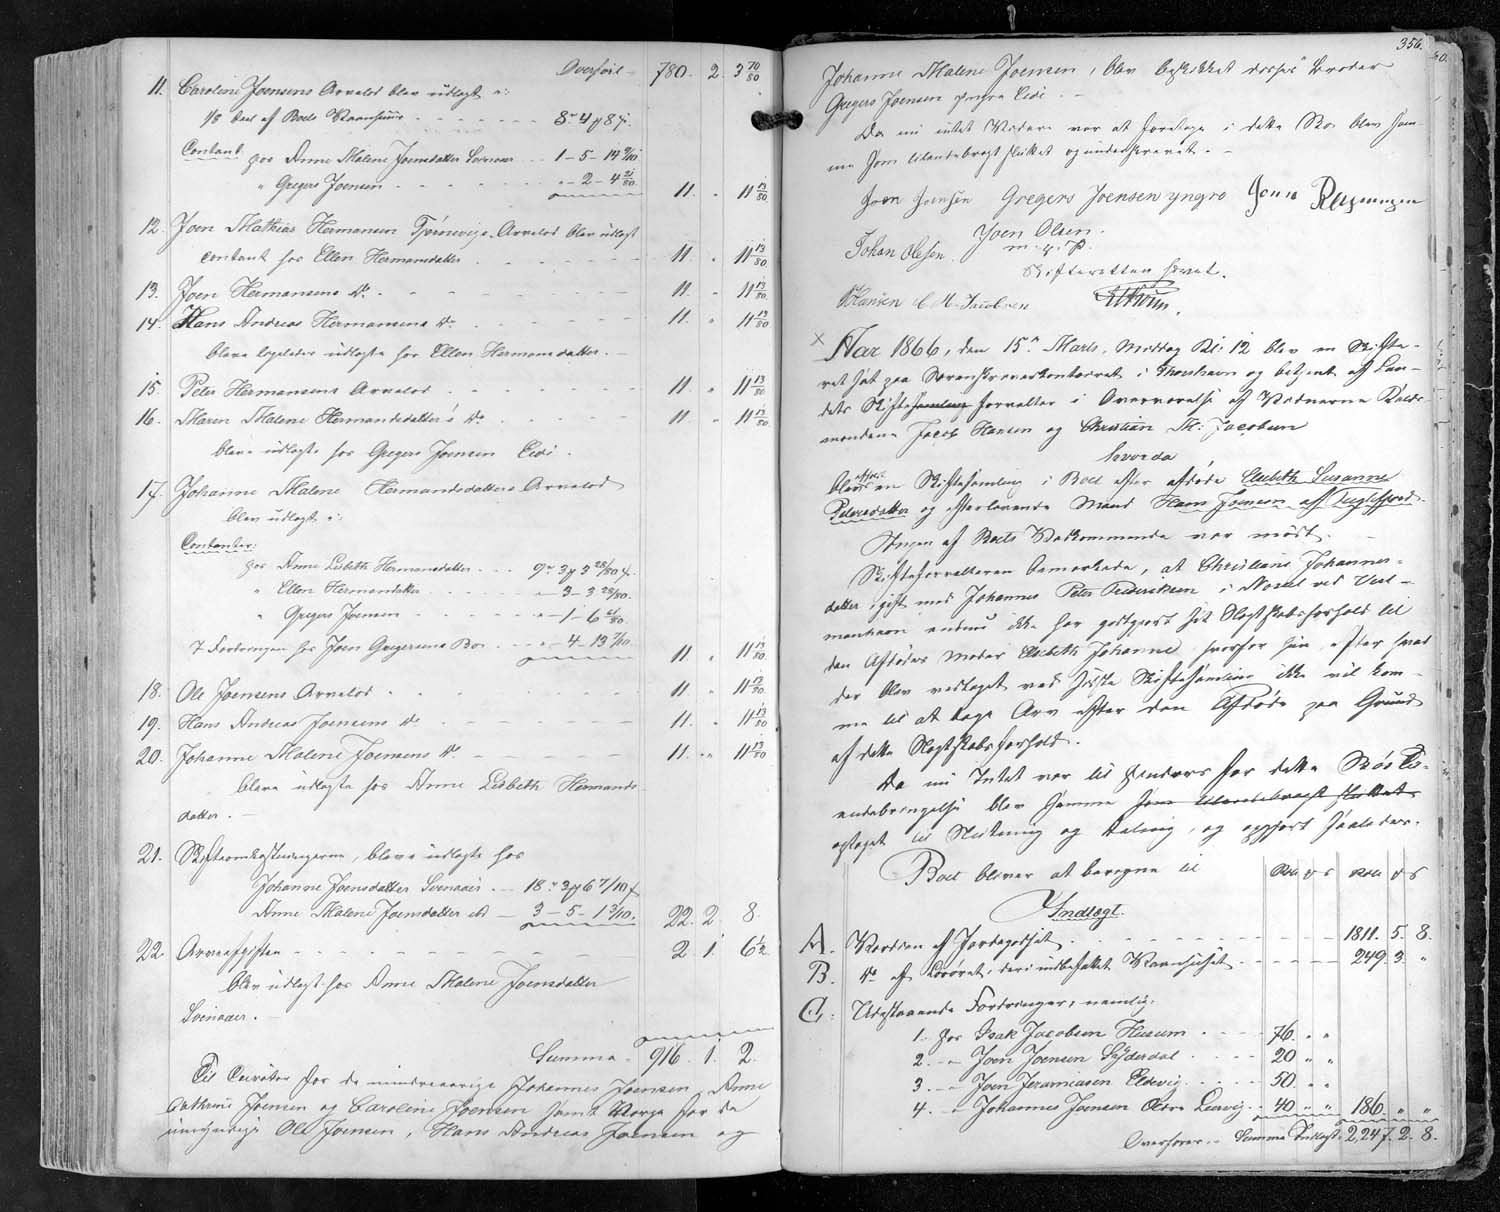 Overført 780. 2. 3 70/80
11. Caroline Joensens Arvelod blev udlagt i:
1/8 Deel af Boets Kvarnhuus 8. 4 8
Contant hos Anne Malene Joensdatter Svinaaer 1-5-14 9/10
" Gregers Joensen "-2-4 21/80 11. " 11 13/80
12. Joen Mathias Hermansen Tjørnevigs Arvelod blev udlagt
contant hos Ellen Hermansdatter 11. " 11 13/80
13. Joen Hermansens Do 11. " 11 13/80
14. Hans Andreas Hermansens Do 11. " 11 13/80
bleve ligeledes udlagte hos Ellen Hermansdatter.
15. Peter Hermansens Arvelod 11. " 11 13/80
16. Maren Malene Hermansdatter's Do 11. " 11 13/80
bleve udlagte hos Gregers Joensen Eide.
17. Johanne Malene Hermansdatters Arvelod
blev udlagt i:
Contanter:
hos Anne Lisbeth Hermansdatter 9. 3 3 28/80
" Ellen Hermansdatter "-3-3 28/80.
" Gregers Joensen "-1-6 /80
I Fordringen hos Joen Gregersens Bo "-4-13 7/10 11. " 11 13/80
18. Ole Joensens Arvelod 11. " 11 13/80
19. Hans Andreas Joensens Do 11. " 11 13/80
20. Johanne Malene Joensens Do 11. " 11 13/80
bleve udlagte hos Anne Lisbeth Hermans-
datter.
21. Skifteomkostningerne, bleve udlagte hos
Johanne Joensdatter Svinaaer 18. 3 6 7/10
Anne Malene Joensdatter ibd 3-5-1 3/10. 22. 2. 8.
22. Arveafgiften 2. 1. 6 1/2
blev udlagt hos Anne Malene Joensdatter
Svinaaer.
Summa 916. 1. 2.
Til Curator for de mindreaarige Johannes Joensen, Anne
Cathrine Joensen og Caroline Joensen samt Værge for de
umyndige Ole Joensen, Hans Andreas Joensen og
356.
Johanne Malene Joensen, blev beskikket disses Broder
Gregers Joensen yngre Eide.
Da nu intet Videre var at foretage i dette Bo blev sam-
me som tilendebragt sluttet og underskrevet.
Joen Joensen Gregers Joensen yngre
Joen Olsen.
Johan Olesen. m. f. P.
Skifteretten hævet.
JHansen C M Jacobsen
Aar 1866, den 15de Marts, Middag Kl. 12 blev en Skifte-
ret sat paa Sorenskriverkontoret i Thorshavn og betjent af Lan-
dets Skiftesamling forvalter i Overværelse af Vidnerne Raads-
mændene Jacob Hansen og Christian M. Jacobsen
hvorda
blev atter en Skiftesamling i Boet efter afdøde Elsebeth Susanne
Petersdatter og efterlevende Mand Hans Joensen af Fuglefjord.
Ingen af Boets Vedkommende var mødt.
Skifteforvalteren bemærkede, at Christiane Johannes-
datter gift med Johannes Peter Frederiksen i Norddal ved Vest-
manhavn endnu ikke har godtgjort sit Slægtskabsforhold til
den Afdødes Moder Elsebeth Johanne, hvorfor hun, efter hvad
der blev vedtaget ved sidste Skiftesamling ikke vil kom-
me til at tage Arv efter den Afdøde paa Grund
af dette Slægtskabsforhold.
Da nu Intet var til Hinder for dette Boes Til-
endebringelse blev samme som tilendebragt sluttet
optaget til Slutning og Deling, og opgjort saaledes.
Boet bliver at beregne til Rd. M S Rd. M S
Indtægt.
A. Værdien af Jordegodset 1811. 5. 8.
B. Do af Løsøret, deri indbefattet Kvarnhuset 249. 3. "
C. Udestaaende Fordringer, nemlig:
1. hos Isak Jacobsen Husum 76. " "
2. " Joen Joensen Syderdal 20 " "
3. " Joen Jeremiasen Eldevig 50. " "
4. " Johannes Joensen Ødre Leervig 40 " " 186. " "
Overføres Summa Indtægt 2,247. 2. 8.